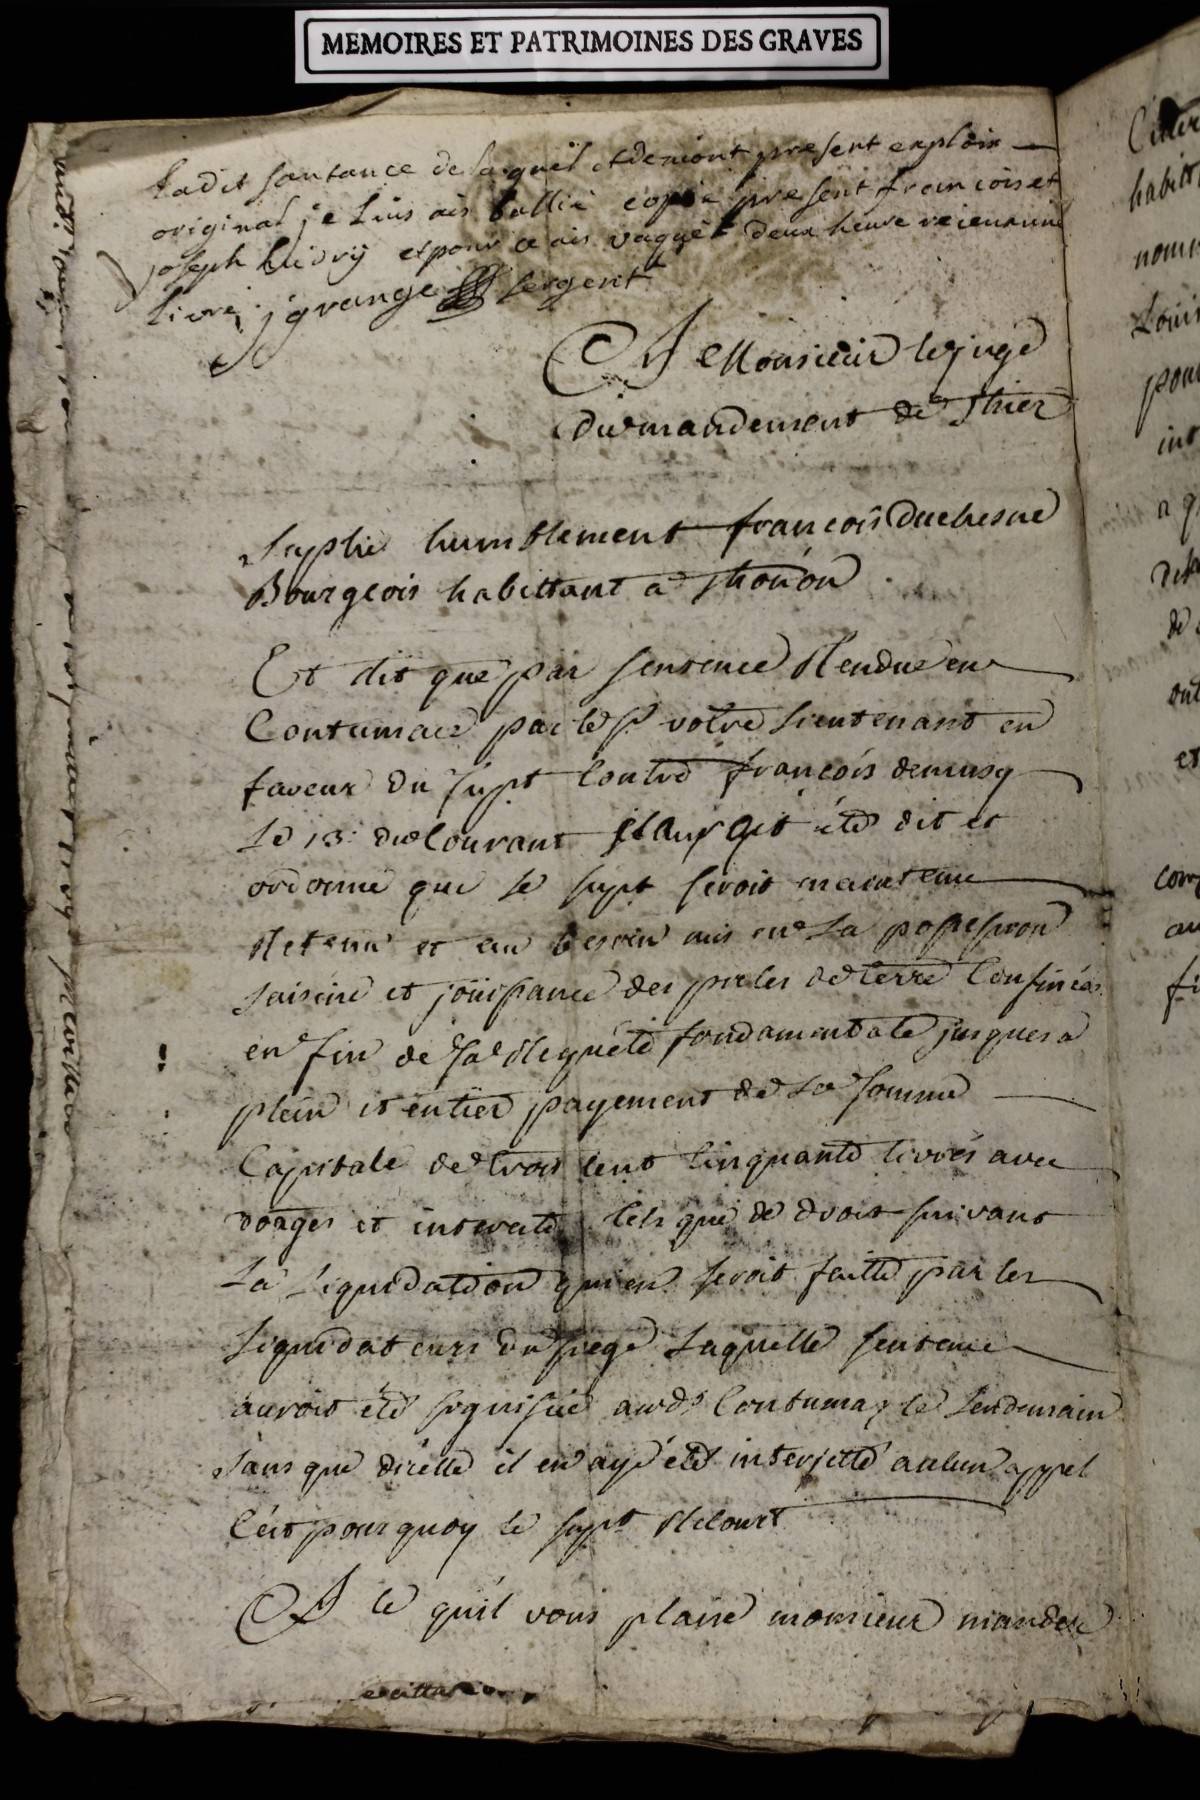 MEMOIRES ET PATRIMOINES DES GRAVES
ladit santance de laquel et de mont present exploix
original je luis ais ballié copie present francois et
joseph et pour ce ais vaqué deux heure reienanne
livre jgrange sergent
A Monsieur le juge
du mandement de Thiez
Suplie humblement francois Duchesne
Bourgeois habittant a Thonon
Et dit que par sentence Rendue en
Contumace par le Sr votre Lieutenant en
faveur du supt Contre francois demusy
Le 13 du Courant il auroit été dit et
ordonné que le supt seroit maintenu
Retenu et au besoin mis en La possession
saisine et jöuissance des pieces de terre Confinées
en fin de sa Requéte fondamentale jusques a
plein et entier payement de La somme
Capitale de trois cent cinquante livres avec
donages et interests tels que de droit suivant
La Liquidation qui en seroit faitte par les
Liquidateurs du siege Laquelle sentence
auroit été signifiée audt Contumax le Lendemain
sans que d'icelle il en aye été interjetté aucun appel
C'est pourquoy le supt Recourt
A ce qu'il vous plaise monsieur mander